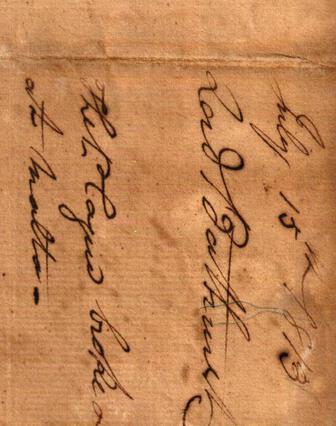 July 15th 1813
Lord Bathurst
The Plague broke
at Malta.